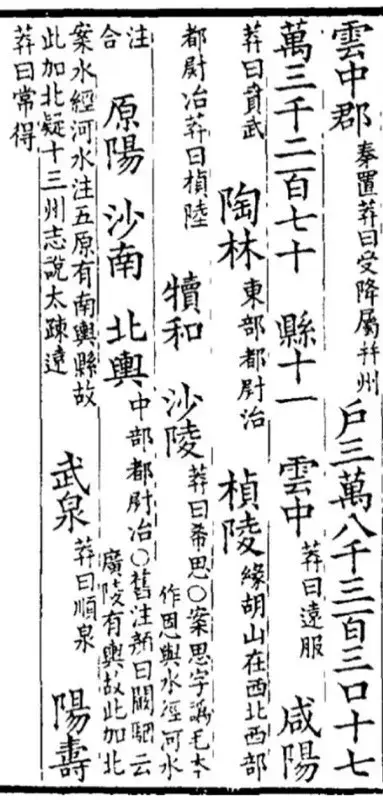 雲中郡 秦置莽曰受降屬幷州 戶三萬八千三百三口十七
萬三千二百七十 縣十一 雲中 莽曰遠服 咸陽
莽曰賁武 陶林 東部都尉治 楨陵 緣胡山在西北西部
都尉治莽曰楨陸 犢和 沙陵 莽曰希思○案思字譌毛本
作恩與水經河水
注
合 原陽 沙南 北輿 中部都尉治○舊注顏曰闞駰云
廣陵有輿故此加北
案水經河水注五原有南輿縣故
此加北疑十三州志說太疎遠 武泉 莽曰順泉 陽壽
莽曰常得